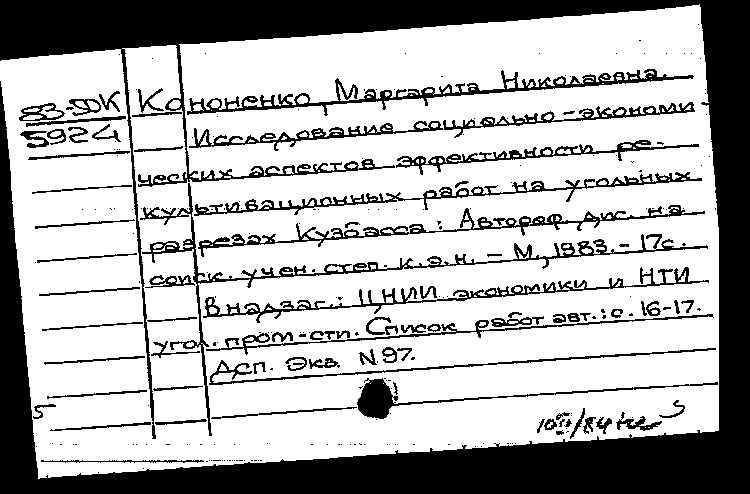 83-5ДК Кононенко, Маргарита Николаевна.
5924 Исследование социально-экономи-
ческих аспектов эффективности ре-
культивационных работ на угольных
разрезах Кузбасса: Автореф. дис. на
соиск. учен. степ. к.э.н. - М., 1983. - 17с.
В надзаг.: ЦНИИ экономики и НТИ
угол. пром-сти. Список работ авт.: с. 16-17.
Дсп. Экз. N 97.
5